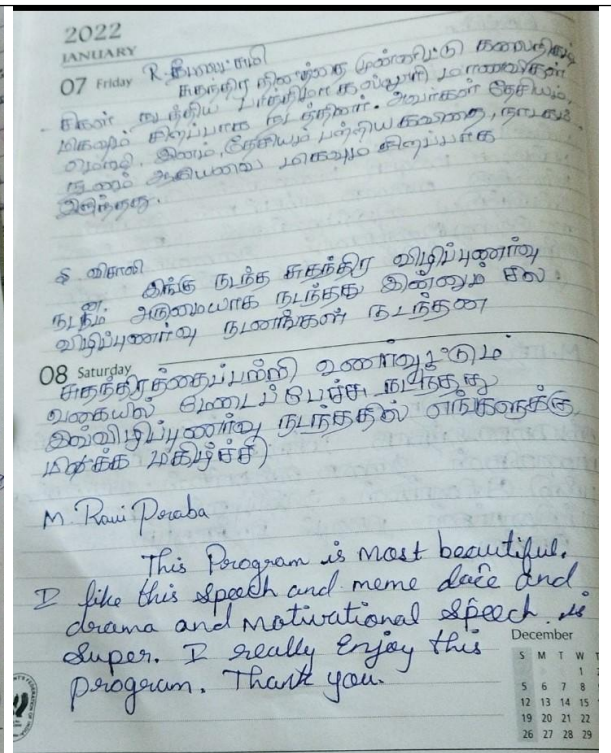 2022
JANUARY
07 Friday
சுதந்திர தினத்தை முன்னிட்டு கலைநிகழ்
சிகள் நடத்திய பாத்திமா கல்லூரி மாணவிகள்
மிகவும் சிறப்பாக நடத்தினர். அவர்கள் தேசியம்,
இனம், தேசியம் பற்றிய கவிதை, நாடகம்
நடனம் ஆகியவை மிகவும் சிறப்பாக
இருந்தது.
விசாலி
இங்கு நடந்த சுதந்திர விழிப்புணர்வு
நடனம் அருமையாக நடந்தது இன்னும் சில
விழிப்புணர்வு நடனங்கள் நடந்தன
08 Saturday
சுதந்திரத்தைப்பற்றி உணர்வூட்டும்
வகையில் மேடைப் பேச்சு நடந்தது
இவ்விழிப்புணர்வு நடந்ததில் எங்களுக்கு
மிக்க மகிழ்ச்சி)
M. Ravi Peraba
This Program is most beautiful.
I like this speech and meme dace and
drama and motivational speech is
Super. I really Enjoy this
program. Thank you.
December
S M T W T
1
5 6 7 8
12 13 14 15
19 20 21 22
26 27 28 29